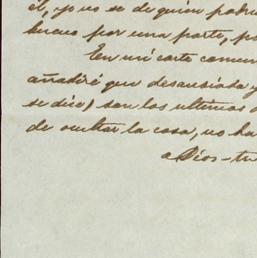 él, yo no se de quien podr
bueno por una parte, po
En mi carta comun
añadiré que desausiada y
se dice) son los ultimos d
de ocultar la cosa, no ha
a Dios - tu